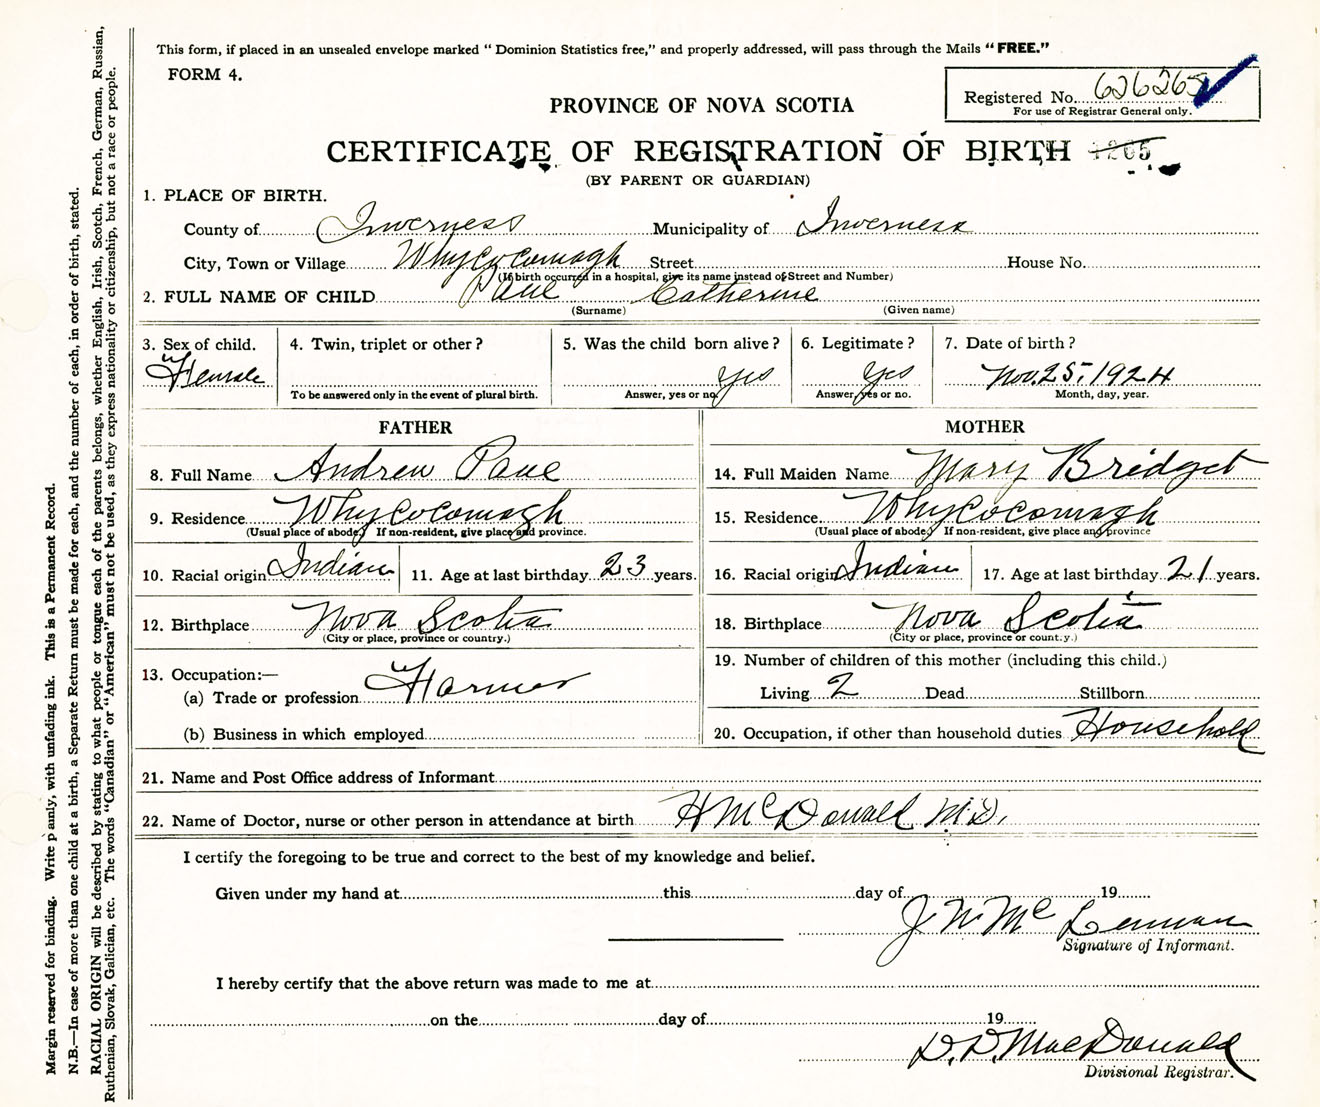 This form, if placed in an unsealed envelope marked "Dominion Statistics free," and properly addressed, will pass through the Mails "FREE."
FORM 4.
Registered No. 626265
For use of Registrar General only.
PROVINCE OF NOVA SCOTIA
CERTIFICATE OF REGISTRATION OF BIRTH 1265
(BY PARENT OR GUARDIAN)
1. PLACE OF BIRTH.
County of Inverness Municipality of Inverness
City, Town or Village Whycocomagh Street House No.
(If birth occurred in a hospital, give its name instead of Street and Number)
2. FULL NAME OF CHILD Paul Catherine
(Surname) (Given name)
3. Sex of child. 4. Twin, triplet or other? 5. Was the child born alive? 6. Legitimate? 7. Date of birth?
Female yes yes Nov. 25, 1924
To be answered only in the event of plural birth. Answer, yes or no. Answer, yes or no. Month, day, year.
FATHER MOTHER
8. Full Name Andrew Paul 14. Full Maiden Name Mary Bridget
9. Residence Whycocomagh 15. Residence Whycocomagh
(Usual place of abode.) If non-resident, give place and province. (Usual place of abode.) If non-resident, give place and province
10. Racial origin Indian 11. Age at last birthday 23 years. 16. Racial origin Indian 17. Age at last birthday 21 years.
12. Birthplace Nova Scotia 18. Birthplace Nova Scotia
(City or place, province or country.) (City or place, province or count.y.)
13. Occupation:— 19. Number of children of this mother (including this child.)
(a) Trade or profession Farmer Living 2 Dead Stillborn
(b) Business in which employed 20. Occupation, if other than household duties Household
21. Name and Post Office address of Informant
22. Name of Doctor, nurse or other person in attendance at birth H McDonald M.D.
I certify the foregoing to be true and correct to the best of my knowledge and belief.
Given under my hand at this day of 19
J. N. McLennan
Signature of Informant.
I hereby certify that the above return was made to me at
on the day of 19
D. D. MacDonald
Divisional Registrar.
Margin reserved for binding. Write p ainly, with unfading ink. This is a Permanent Record.
N.B.—In case of more than one child at a birth, a Separate Return must be made for each, and the number of each, in order of birth, stated.
RACIAL ORIGIN will be described by stating to what people or tongue each of the parents belongs, whether English, Irish, Scotch, French, German, Russian,
Ruthenian, Slovak, Galician, etc. The words "Canadian" or "American" must not be used, as they express nationality or citizenship, but not a race or people.